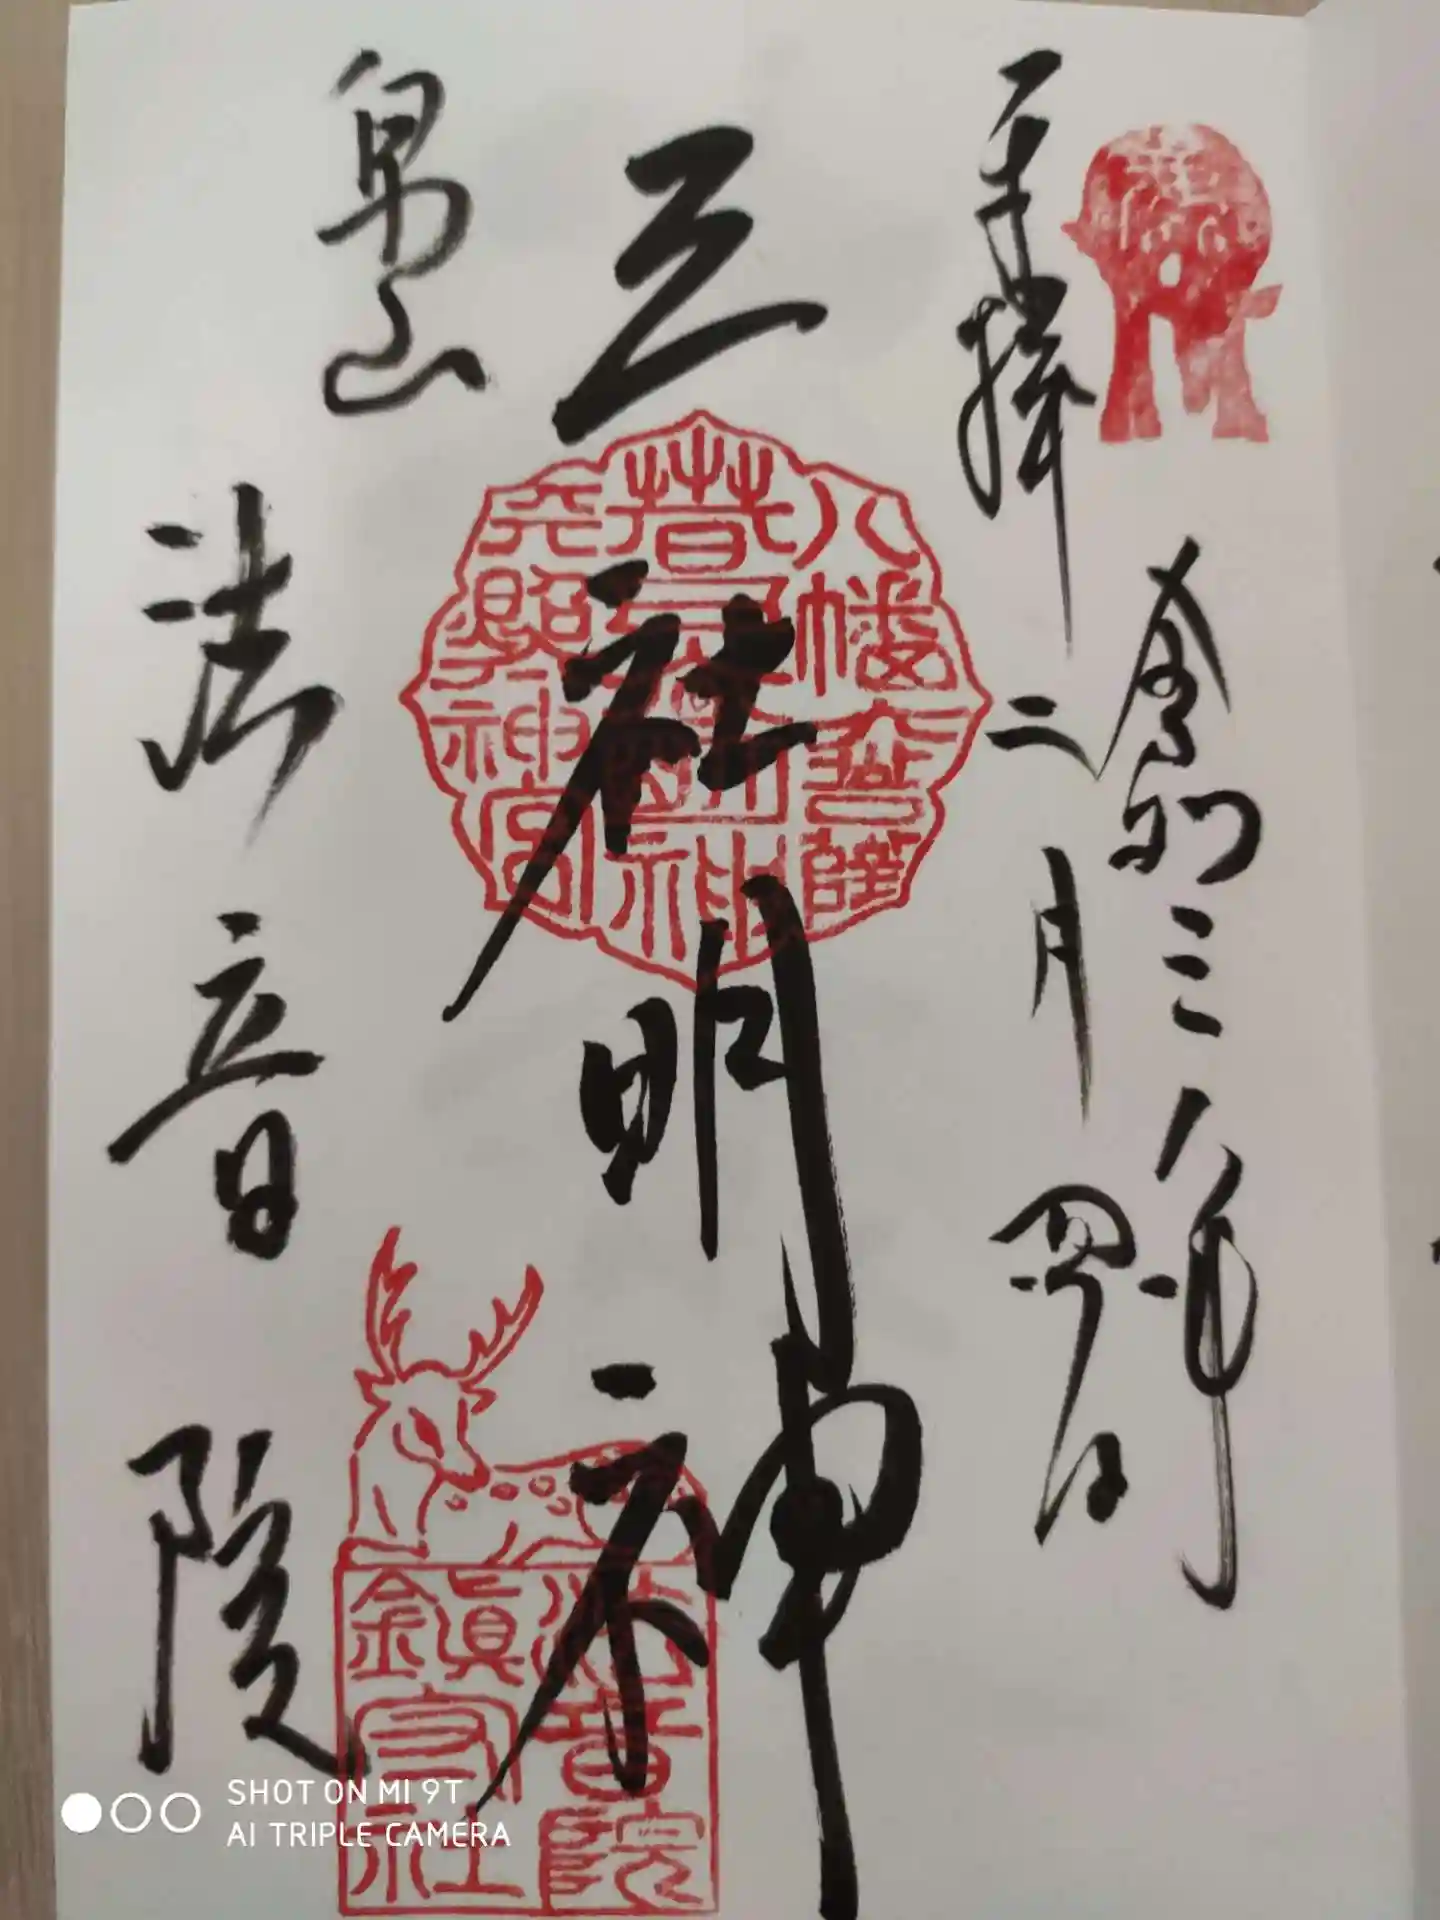 奉拝
令和三年
二月四日
三社明神
八幡大菩薩
春日大明神
天照皇神宮
島山
法音院
法音院
鎮守社
SHOT ON MI 9T
AI TRIPLE CAMERA